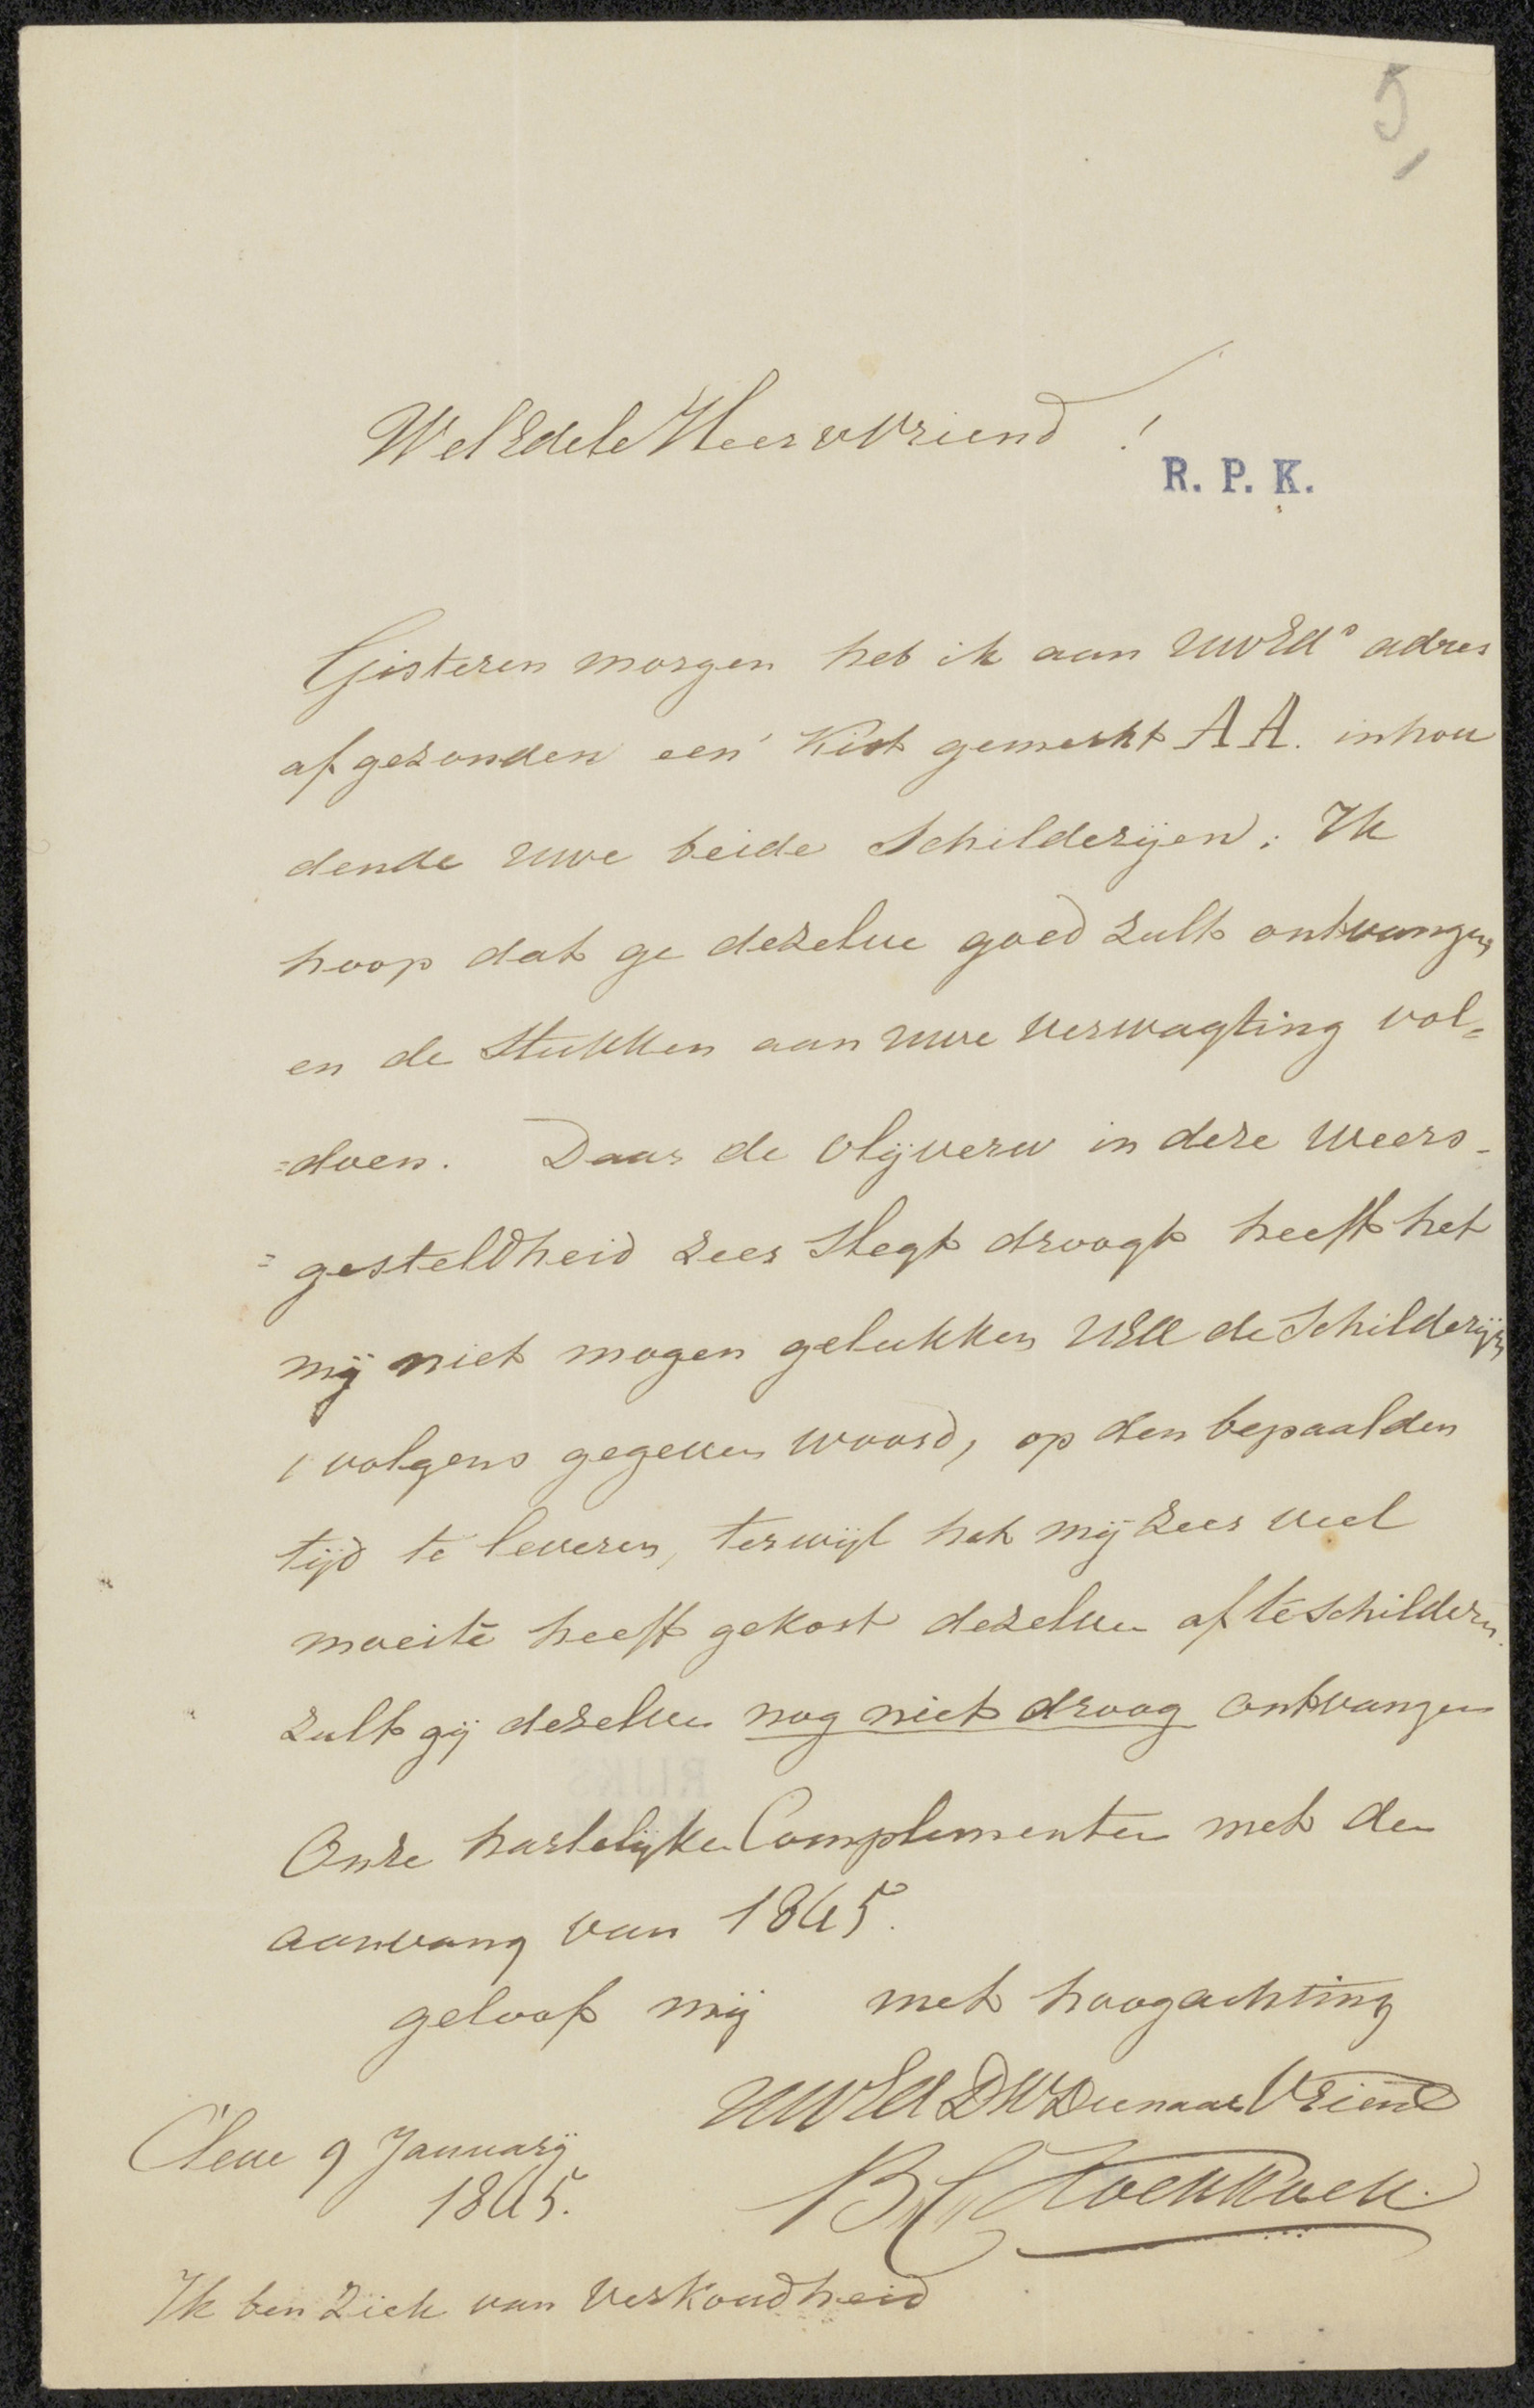 5,
WelEdele Heer & Vriend !
R. P. K.
Gisteren morgen heb ik aan UwEds adres
afgezonden een Kist gemerkt AA. inhou
dende uwe beide Schilderijen; Ik
hoop dat ge dezelve goed zult ontvangen
en de Stukken aan uwe verwagting vol=
=doen. Daar de olijverw in deze weers-
=gesteldheid zeer slegt droogt heeft het
mij niet mogen gelukken UEd de Schilderijen
, volgens gegeven woord, op den bepaalden
tijd te leveren, terwijl het mij zeer veel
moeite heeft gekost dezelven af te schilderen.
zult gij dezelven nog niet droog ontvangen
Onze hartelijke Complementen met den
aanvang van 1845.
geloof mij met hoogachting
UWEd DWDienaar Vriend
Cleve 9 Januarij
1845.
B.C. Koekkoek.
Ik ben Ziek van Verkoudheid